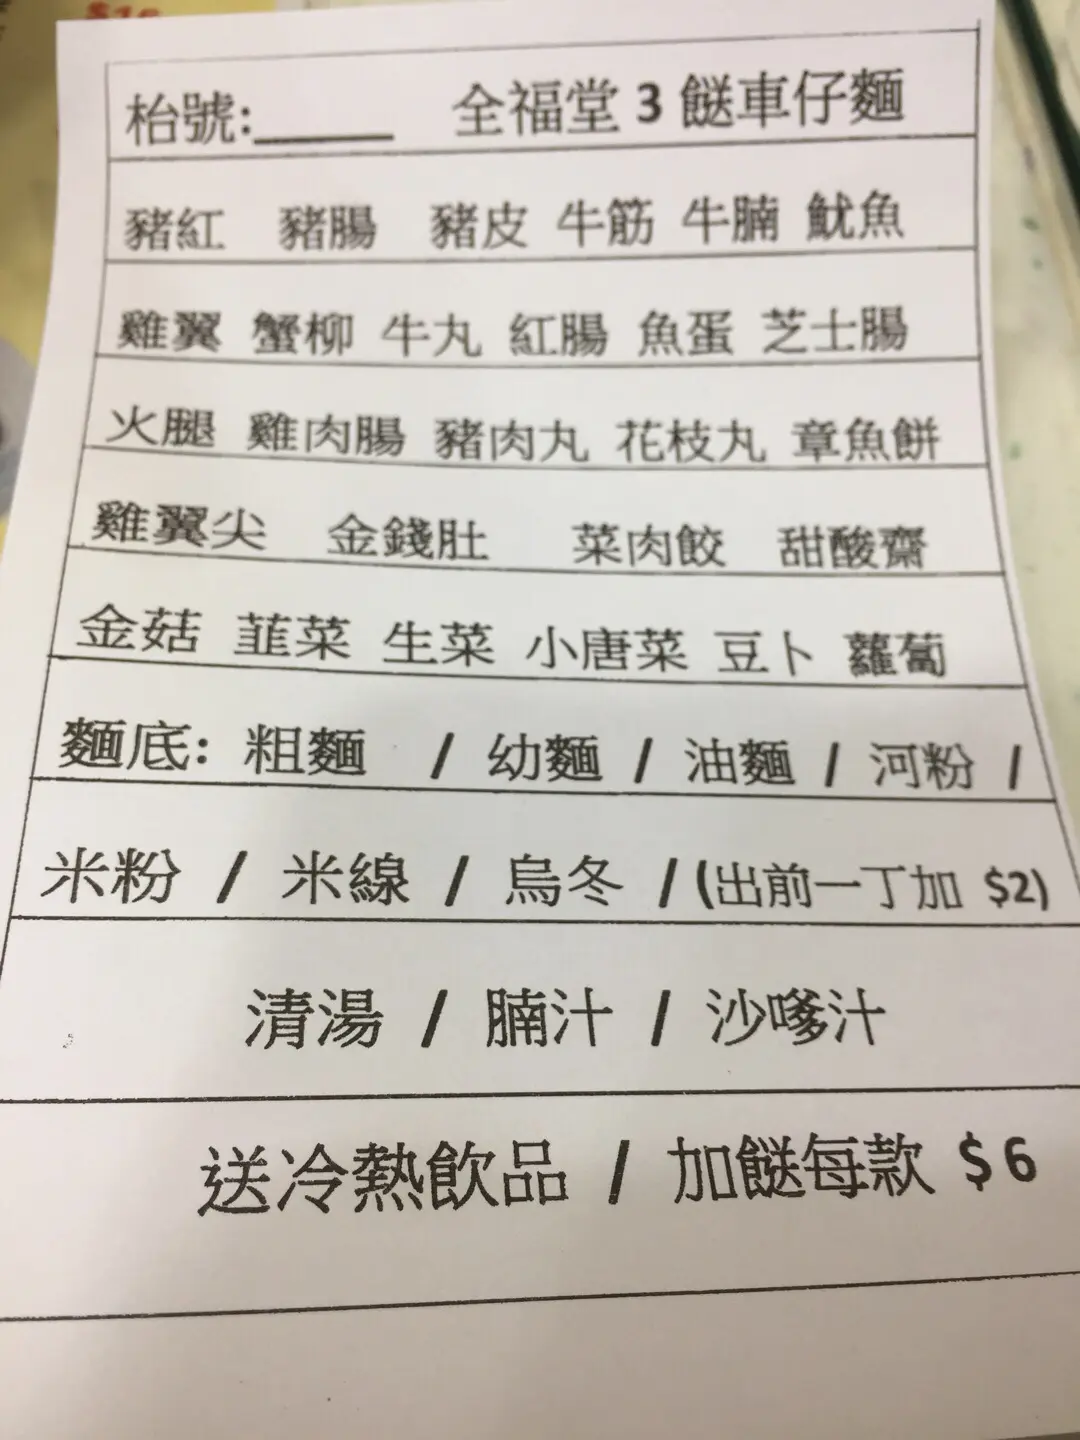 $16
枱號:_____ 全福堂 3 餸車仔麵
豬紅 豬腸 豬皮 牛筋 牛腩 魷魚
雞翼 蟹柳 牛丸 紅腸 魚蛋 芝士腸
火腿 雞肉腸 豬肉丸 花枝丸 章魚餅
雞翼尖 金錢肚 菜肉餃 甜酸齋
金菇 韮菜 生菜 小唐菜 豆卜 蘿蔔
麵底: 粗麵 / 幼麵 / 油麵 / 河粉 /
米粉 / 米線 / 烏冬 / (出前一丁加 $2)
清湯 / 腩汁 / 沙嗲汁
送冷熱飲品 / 加餸每款 $6